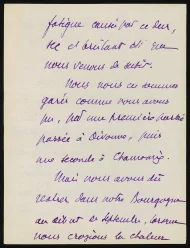 fatigue causé par ce dur,
sec et brûlant été que
nous venons de subir.
Nous nous en sommes
garés comme nous avons
pu, par une première partie
passée à Divonne, puis
une seconde à Chamonix.
Mais nous avons dû
rentrer dans notre Bourgogne
au début de septembre, lorsque
nous croyions la chaleur